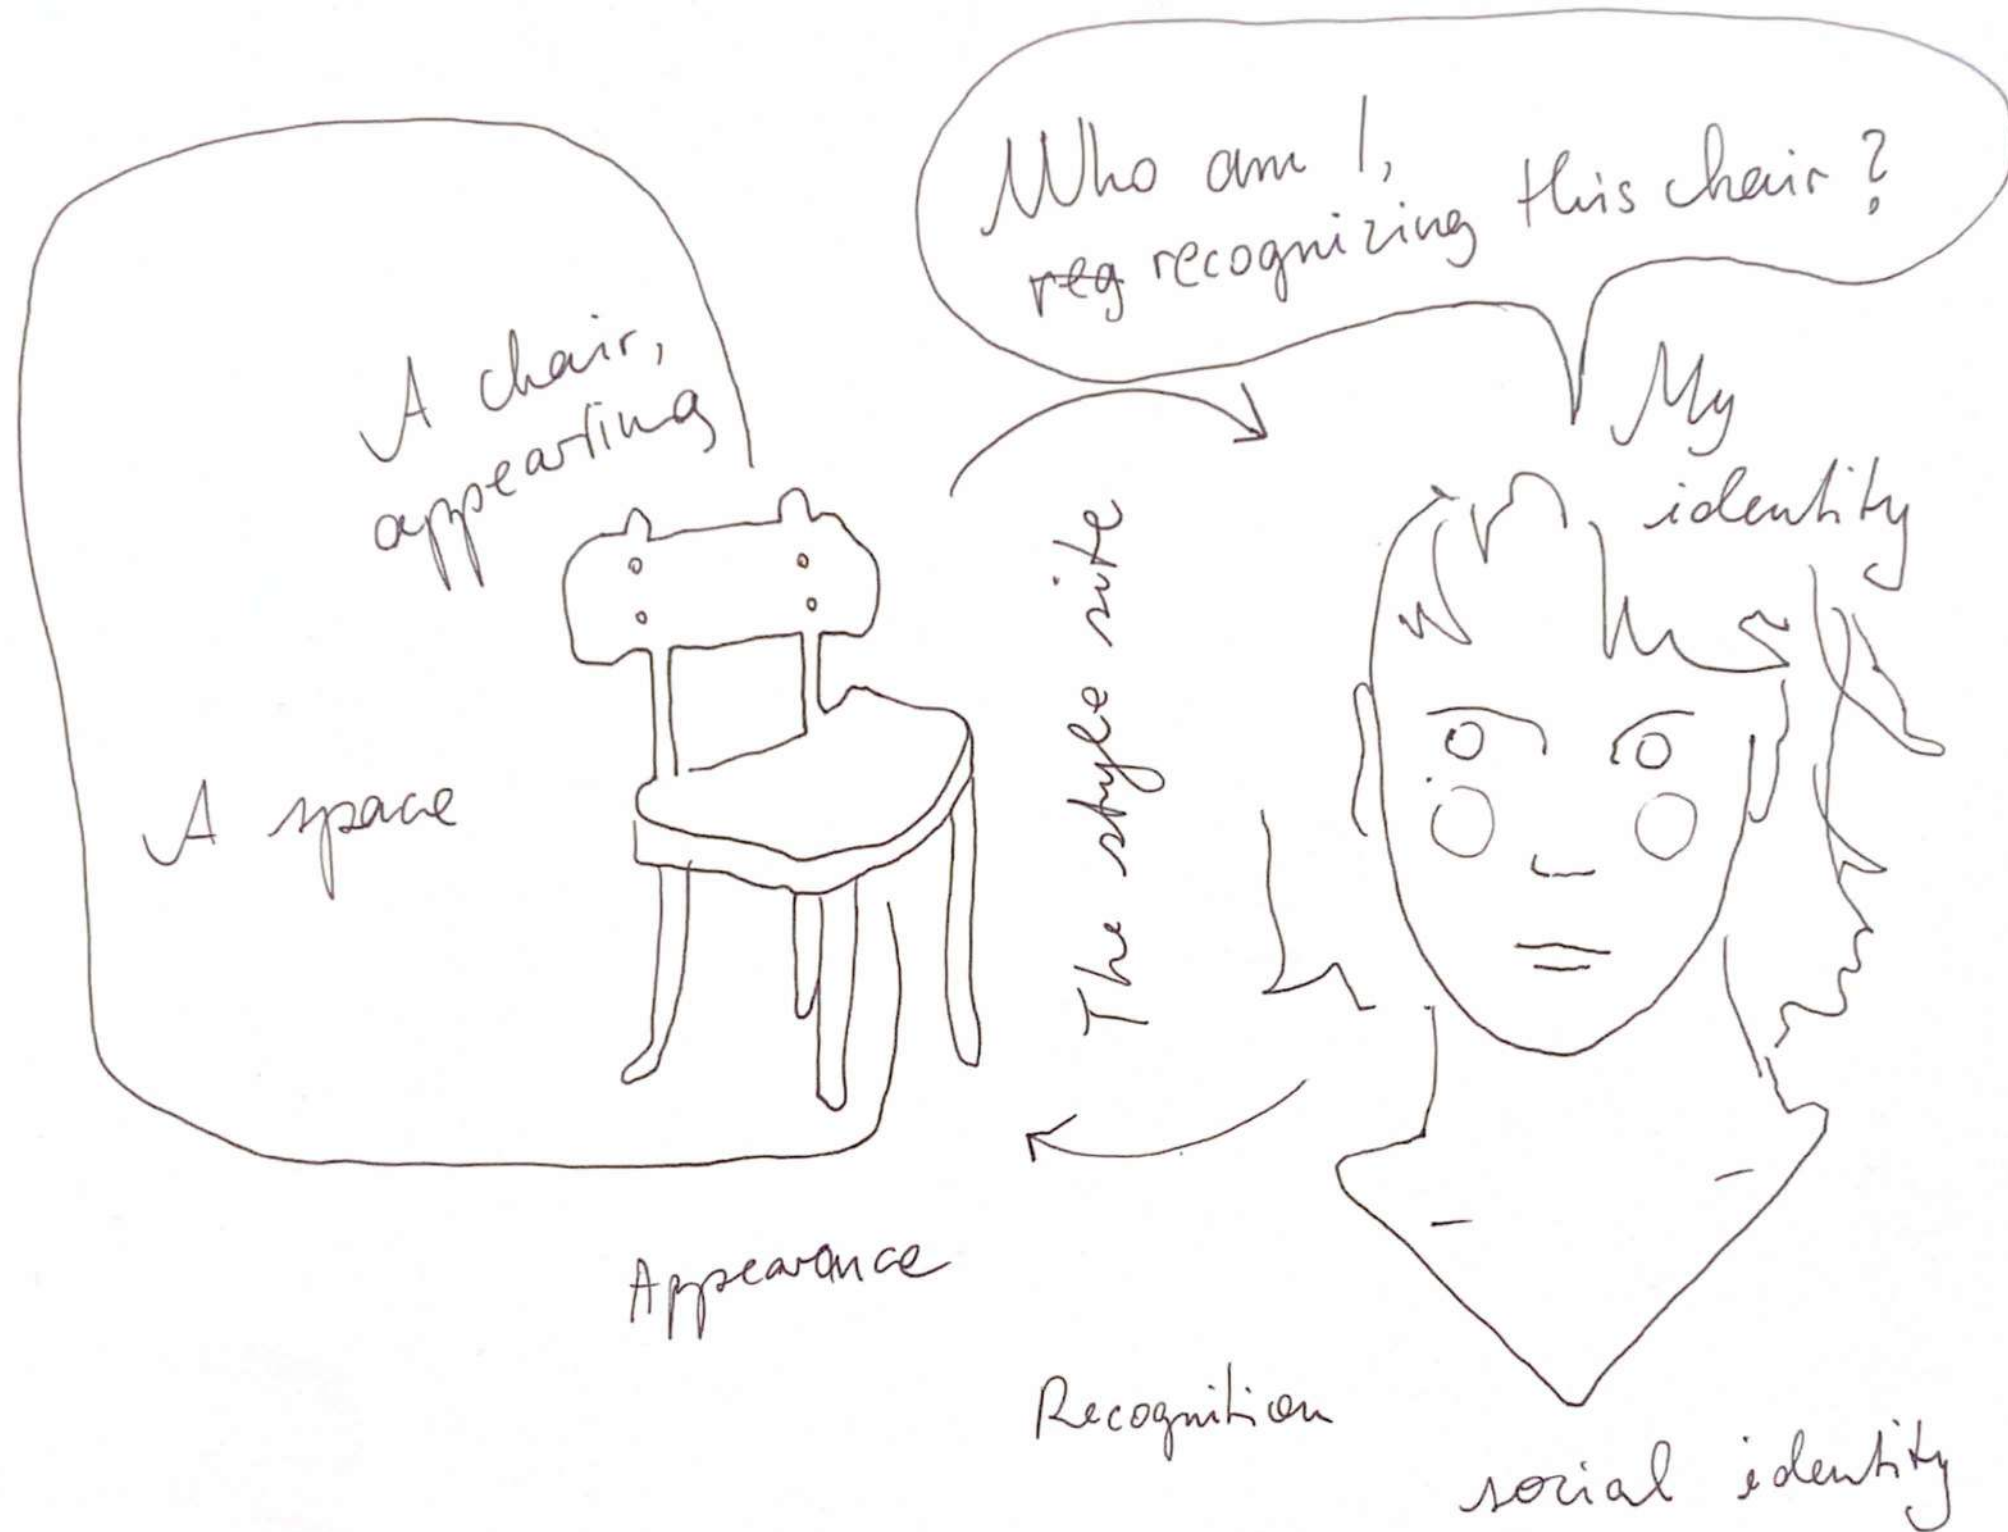 Who am I,
reg recognizing this chair?
A chair,
appearing
My
identity
A space
The style site
Appearance
Recognition
social identity